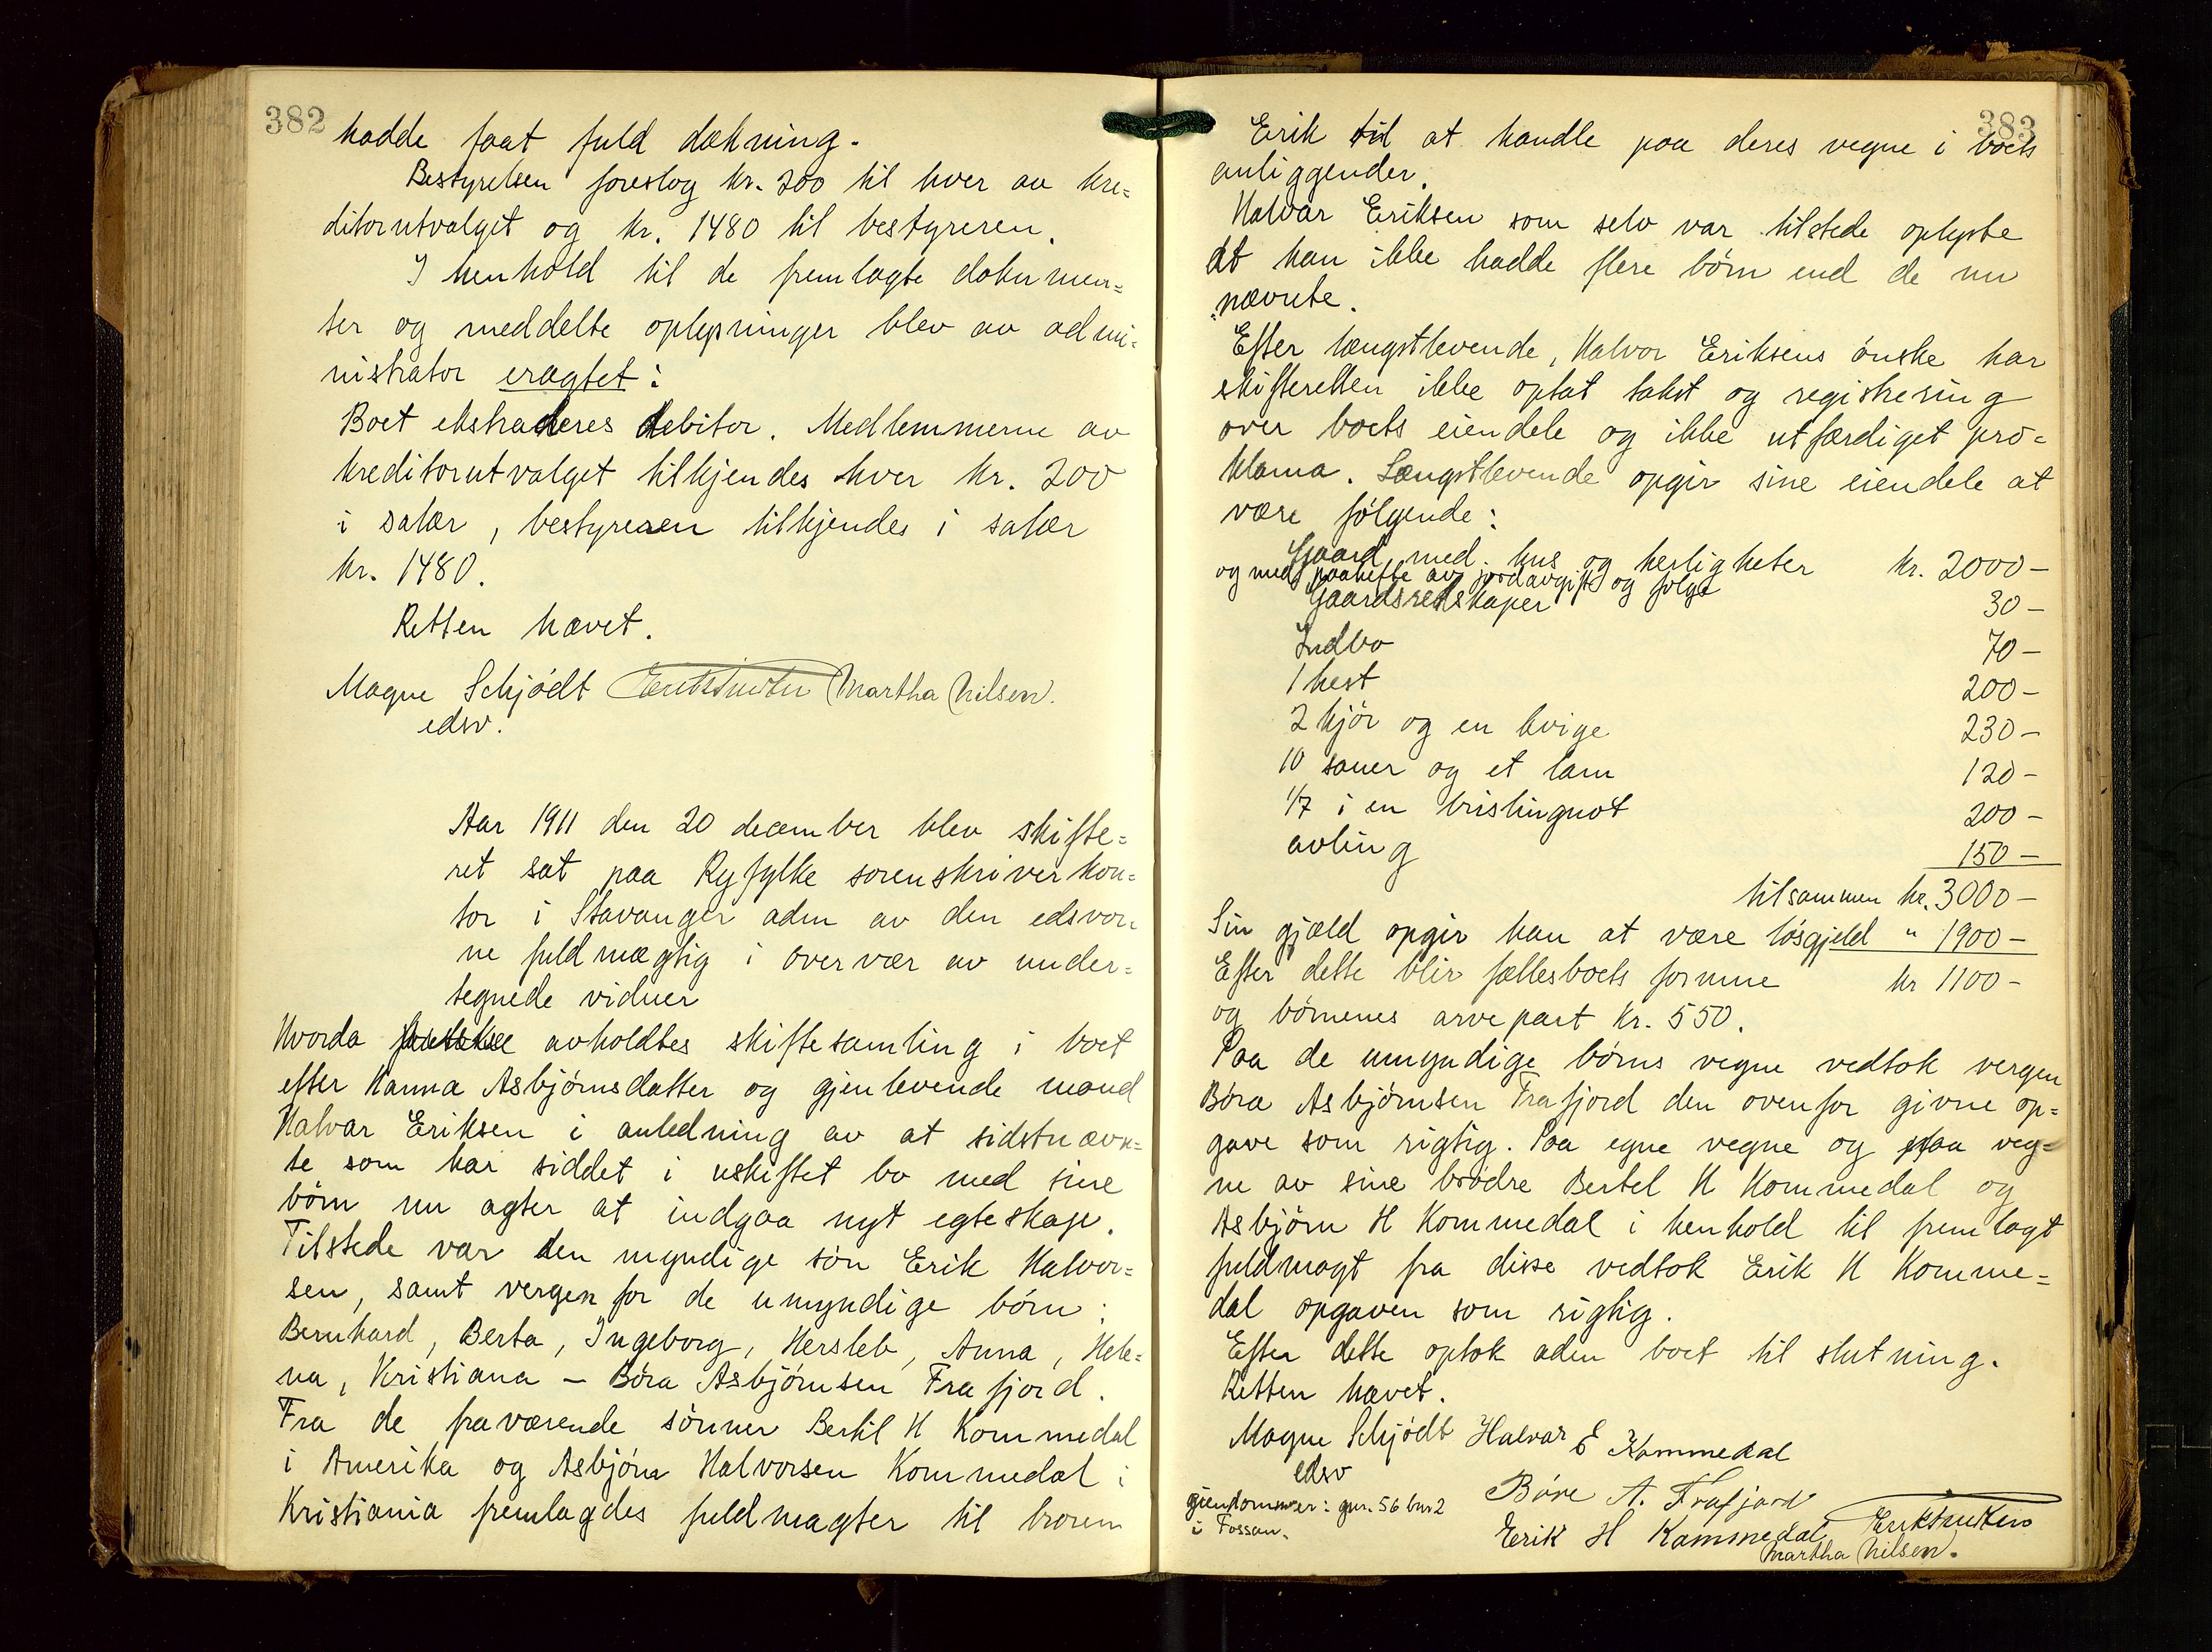 382
hadde faat fuld dækning.
Bestyrelsen foreslog kr. 200 til hver av kre=
ditorutvalget og kr. 1480 til bestyreren.
I henhold til de fremlagte dokumen=
ter og meddelte oplysninger blev av admi=
nistrator eragtet:
Boet ekstraderes debitor. Medlemmerne av
kreditorutvalget tilkjendes hver kr. 200
i salær, bestyreren tilkjendes i salær
kr. 1480.
Retten hævet.
Magne Schjödt Martha Nilsen.
edsv.
Aar 1911 den 20 december blev skifte=
ret sat paa Ryfylke sorenskriverkon=
tor i Stavanger adm av den edsvor
ne fuldmægtig i overvær av under=
tegnede vidner
Hvorda avholdtes skiftesamling i boet
efter Hanna Asbjørnsdatter og gjenlevende mand
Halvar Eriksen i anledning av at sidstnævn=
te som har siddet i uskiftet bo med sine
børn nu agter at indgaa nyt egteskap.
Tilstede var den myndige søn Erik Halvor=
sen, samt vergen for de umyndige børn:
Bernhard, Berta, Ingeborg, Hersleb, Anna, Hele=
na, Kristiana – Børa Asbjørnsen Frafjord.
Fra de fraværende sønner Bertil H Kommedal
i Amerika og Asbjørn Halvorsen Kommedal i
Kristiania fremlagdes fuldmagter til broren
383
Erik til at handle paa deres vegne i boets
anliggender.
Halvar Eriksen som selv var tilstede oplyste
at han ikke hadde flere børn end de nu
nævnte.
Efter længstlevende, Halvor Eriksens ønske har
skifteretten ikke optat takst og registrering
over boets eiendele og ikke utfærdiget pro=
klama. Længstlevende opgir sine eiendele at
være følgende:
Gaard med hus og herligheter kr. 2000 –
og med paahefte av jordavgift og følge
Gaardsredskaper 30 –
Indbo 70 –
1 hest 200 –
2 kjør og en kvige 230 –
10 sauer og et lam 120 –
1/7 i en brislingnot 200 –
avling 150 –
tilsammen kr. 3000 –
Sin gjæld opgir han at være løsgjeld " 1900 –
Efter dette blir fællesboets formue kr 1100 –
og børnenes arvepart kr. 550.
Paa de umyndige børns vegne vedtok vergen
Børa Asbjørnsen Frafjord den ovenfor givne op=
gave som rigtig. Paa egne vegne og paa veg=
ne av sine brødre Bertel H Kommedal og
Asbjørn H Kommedal i henhold til fremlagt
fuldmagt fra disse vedtok Erik H Komme=
dal opgaven som rigtig.
Efter dette optok adm boet til slutning.
Retten hævet.
Magne Schjödt Halvar E Kommedal
edsv
Børe A. Frafjord
giendommer: gnr. 56 bnr 2
i Fossan.
Erik H Kommedal
Martha Nilsen.